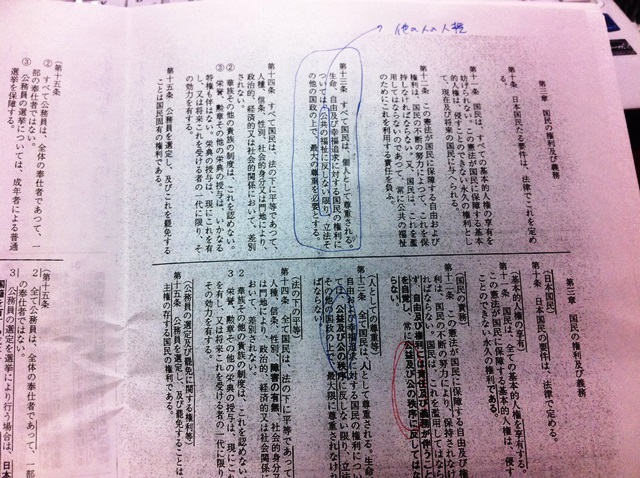 他の人の人権
第三章 国民の権利及び義務
第十条 日本国民たる要件は、法律でこれを定め
第十一条 国民は、すべての基本的人権の享有を
妨げられない。この憲法が国民に保障する基本
的人権は、侵すことのできない永久の権利とし
て、現在及び将来の国民に与へられる。
第十二条 この憲法が国民に保障する自由及び
権利は、国民の不断の努力によつて、これを保
持しなければならない。又、国民は、これを濫
用してはならないのであつて、常に公共の福祉
のためにこれを利用する責任を負ふ。
第十三条 すべて国民は、個人として尊重される。
生命、自由及び幸福追求に対する国民の権利に
ついては、公共の福祉に反しない限り、立法そ
の他の国政の上で、最大の尊重を必要とする。
第十四条 すべて国民は、法の下に平等であつて、
人種、信条、性別、社会的身分又は門地により、
政治的、経済的又は社会的関係において、差別
されない。
② 華族その他の貴族の制度は、これを認めない。
③ 栄誉、勲章その他の栄典の授与は、いかなる
特権も伴はない。栄典の授与は、現にこれを有
し、又は将来これを受ける者の一代に限り、そ
の効力を有する。
第十五条 公務員を選定し、及びこれを罷免する
ことは国民固有の権利である。
(第十五条)
② すべて公務員は、全体の奉仕者であつて、一
部の奉仕者ではない。
③ 公務員の選挙については、成年者による普通
選挙を保障する。
第三章 国民の権利及び義務
(日本国民)
第十条 日本国民の要件は、法律で定める。
(基本的人権の享有)
第十一条 国民は、全ての基本的人権を享有する。
この憲法が国民に保障する基本的人権は、侵す
ことのできない永久の権利である。
(国民の責務)
第十二条 この憲法が国民に保障する自由及び権
利は、国民の不断の努力により、保持されなけ
ればならない。国民は、これを濫用してはなら
ず、自由及び権利には責任及び義務が伴うこと
を自覚し、常に公益及び公の秩序に反してはな
らない。
(人としての尊重等)
第十三条 全て国民は、人として尊重される。生命、
自由及び幸福追求に対する国民の権利につい
ては、公益及び公の秩序に反しない限り、立法
その他の国政の上で、最大限に尊重されなけれ
ばならない。
(法の下の平等)
第十四条 全て国民は、法の下に平等であって、
人種、信条、性別、障害の有無、社会的身分又
は門地により、政治的、経済的又は社会的関係に
おいて、差別されない。
2 華族その他の貴族の制度は、認めない。
3 栄誉、勲章その他の栄典の授与は、現にこれ
を有し、又は将来これを受ける者の一代に限り、
その効力を有する。
(公務員の選定及び罷免に関する権利等)
第十五条 公務員を選定し、及び罷免することは、
主権の存する国民の権利である。
(第十五条)
2 全て公務員は、全体の奉仕者であって、一部
の奉仕者ではない。
3 公務員の選定を選挙により行う場合は、日本